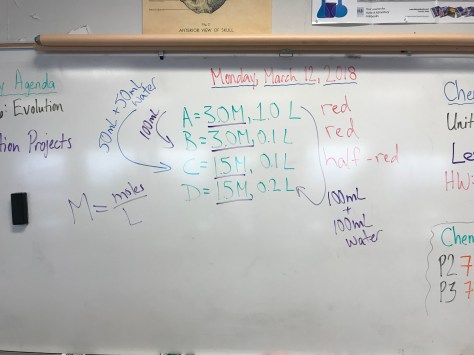 Fig. 2
ANTERIOR VIEW OF SKULL
Monday, March 12, 2018
Agenda
Evolution
Projects
50mL + 50mL
water
100mL
A = 3.0M, 1.0 L
B = 3.0M, 0.1 L
C = 1.5M, 0.1 L
D = 1.5M, 0.2 L
red
red
half-red
100mL
+
100mL
water
M = moles
L
Unit
HW=
P2 7
P3 7